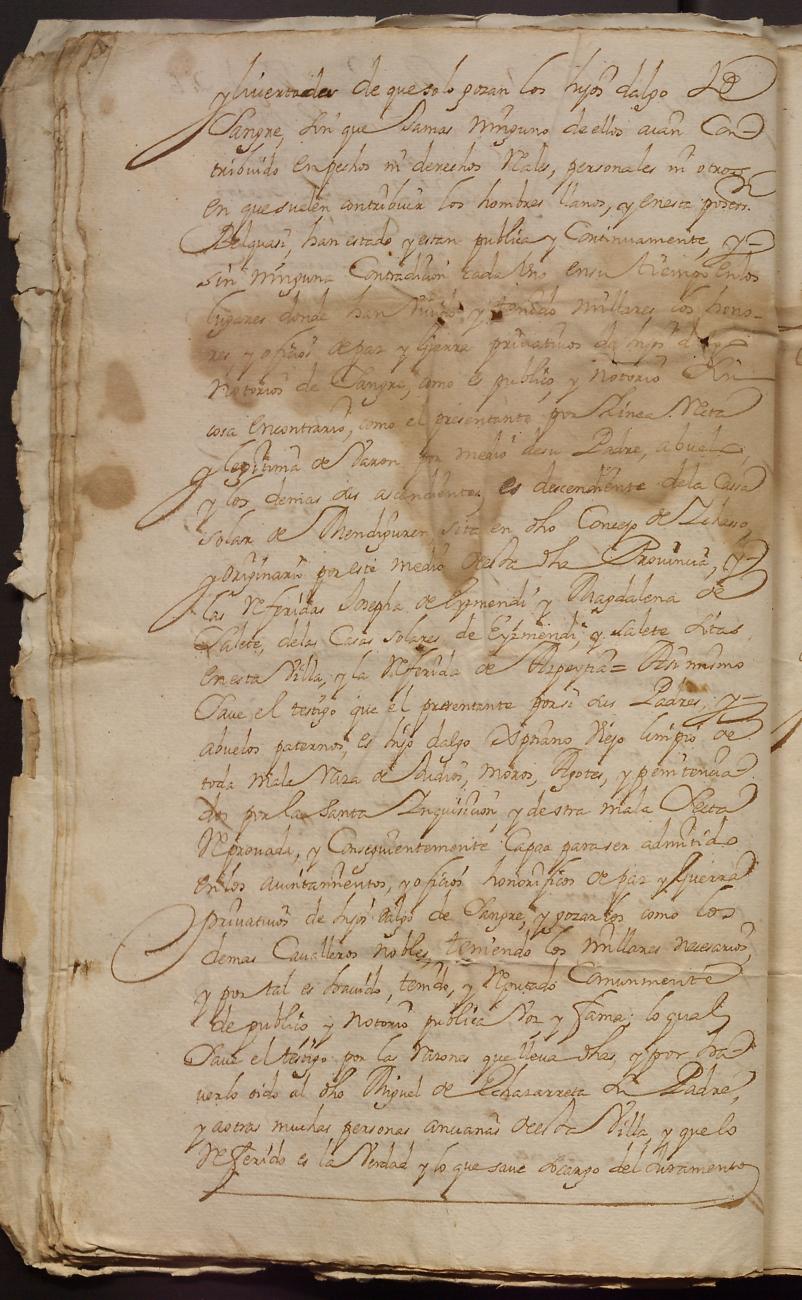 y livertades de que solo gozan los hijos dalgo de
Sangre, sin que Jamas ninguno de ellos aian Con
tribuido en pechos ni derechos Reales, personales ni otros
en que suelen contribuir los hombres llanos, y en esta poses.on
Velquasi, han estado y estan publica y Continuamente, y
sin ninguna Contradicion cada Uno en su tiempo en los
lugares donde han Vivido y tenido millares los hono-
res y oficios de paz y Guerra privativos de hijos dalgo
Notorios de Sangre, como es publico, y notorio sin
cosa en contrario, como el presentante por Linea Recta
y legitima de Varon por medio de su Padre, abuelo,
y los demas sus ascendientes, es descendiente de la Cassa
Solar de Mendiguren sita en dho Concejo de
y originario por este medio de esta dha Provincia, y
las Referidas Josepha de Eyzmendi y Magdalena de
Olalete, de las Casas solares de Eyzmendi, y Olalete sitas
en esta Villa, y la Referida de Azpeytia = Assi mismo
Save el testigo que el presentante por si sus Padres, y
abuelos paternos, es hijo dalgo Xptiano Viejo limpio de
toda mala Raza de Judios, moros, Agotes, y penitencia
dos por la Santa Inquisicion, y de otra mala Secta
Reprovada, y Consequientemente Capaz para ser admitido
en los aiuntamientos, y oficios honorificos de paz y Guerra
privativos de hijos dalgo de Sangre, y gozarlos como los
demas Cavalleros nobles, teniendo los millares necesarios,
y por tal es havido, tenido, y Reputado Comunmente
de publico y notorio publica Voz y fama: lo qual
Save el testigo por las Razones que lleva dhas, y por ha
verlo oido al dho Miguel de Echazarreta su Padre,
y a otras muchas personas ancianas de esta Villa, y que lo
Referido es la Verdad y lo que save so cargo del Juramento